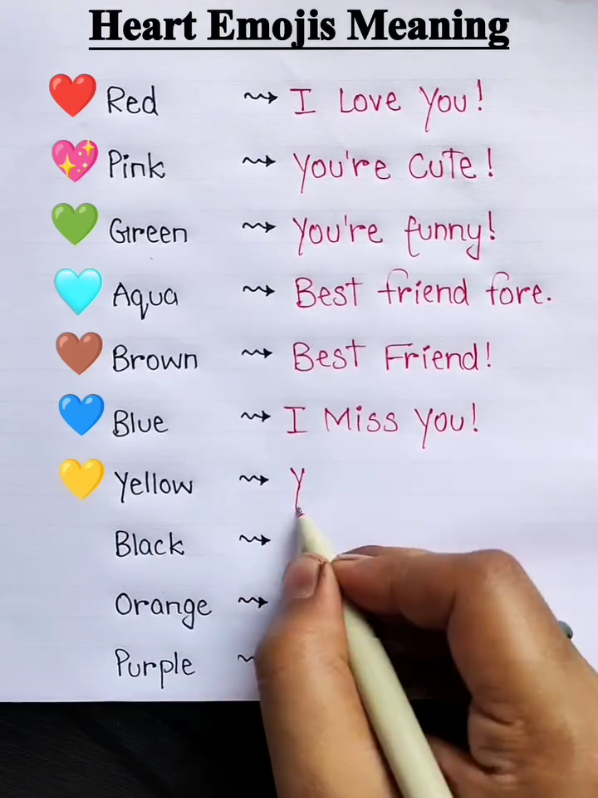 Heart Emojis Meaning
❤️ Red ⇝ I Love You!
💖 Pink ⇝ You're Cute!
💚 Green ⇝ You're funny!
🩵 Aqua ⇝ Best friend fore.
🤎 Brown ⇝ Best Friend!
💙 Blue ⇝ I Miss You!
💛 Yellow ⇝ Y
Black ⇝
Orange ⇝
Purple ⇝